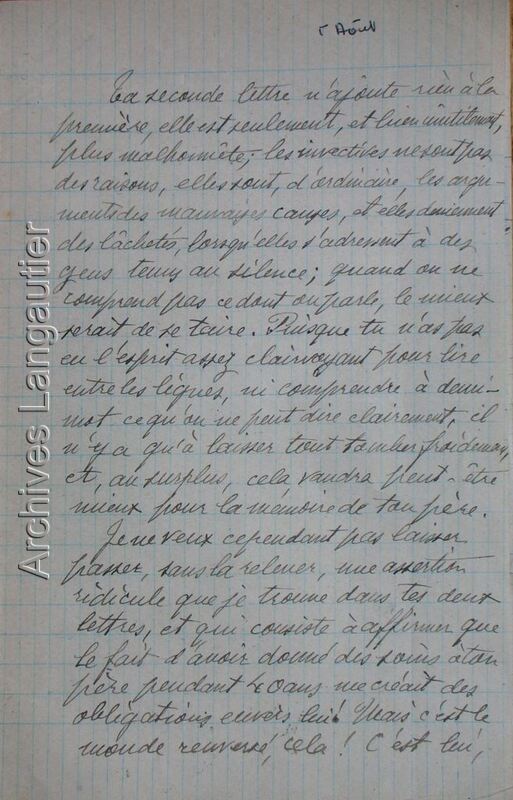 5 Août
Ta seconde lettre n'ajoute rien à la
première, elle est seulement, et bien inutilement,
plus malhonnête; les invectives ne sont pas
des raisons, elles sont, d'ordinaire, les argu-
ments des mauvaises causes, et elles deviennent
des lâchetés, lorsqu'elles s'adressent à des
gens tenus au silence; quand on ne
comprend pas ce dont on parle, le mieux
serait de se taire. Puisque tu n'as pas
eu l'esprit assez clairvoyant pour lire
entre les lignes, ni comprendre à demi-
mot ce qu'on ne peut dire clairement, il
n'y a qu'à laisser tout tomber froidement,
et, au surplus, cela vaudra peut-être
mieux pour la mémoire de ton père.
Je ne veux cependant pas laisser
passer, sans la relever, une assertion
ridicule que je trouve dans tes deux
lettres, et qui consiste à affirmer que
le fait d'avoir donné des soins à ton
père pendant 40 ans me créait des
obligations envers lui! Mais c'est le
monde renversé, cela! C'est lui,
Archives Langautier